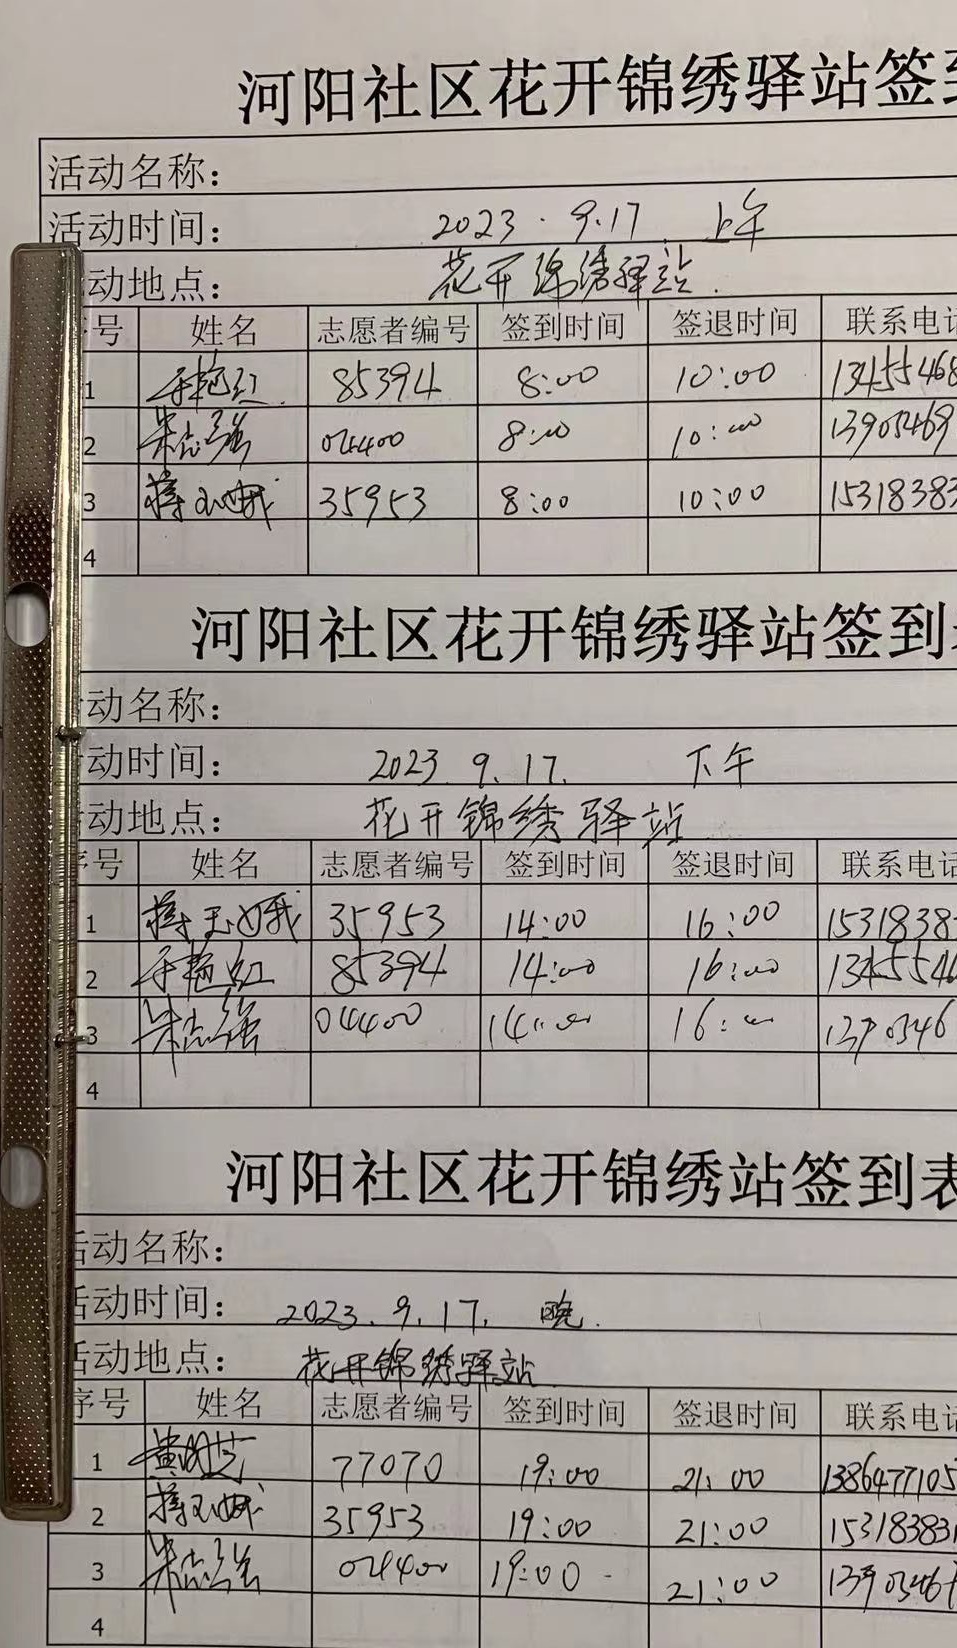 河阳社区花开锦绣驿站签到
活动名称：
活动时间： 2023.9.17 上午
动地点： 花开锦绣驿站.
号 姓名 志愿者编号 签到时间 签退时间 联系电话
1 于艳红 85394 8:00 10:00 13455468
2 朱志强 04400 8:00 10:00 13905469
3 蒋玉娥 35953 8:00 10:00 15318383
4
河阳社区花开锦绣驿站签到
动名称：
动时间： 2023.9.17. 下午
动地点： 花开锦绣驿站
序号 姓名 志愿者编号 签到时间 签退时间 联系电话
1 蒋玉娥 35953 14:00 16:00 1531838
2 于艳红 85394 14:00 16:00 1345546
3 朱志强 04400 14:00 16:00 1390546
4
河阳社区花开锦绣站签到表
活动名称：
活动时间： 2023.9.17. 晚.
活动地点： 花开锦绣驿站
序号 姓名 志愿者编号 签到时间 签退时间 联系电话
1 77070 19:00 21:00 1386477105
2 蒋玉娥 35953 19:00 21:00 153183831
3 朱志强 04400 19:00 21:00 1390546
4